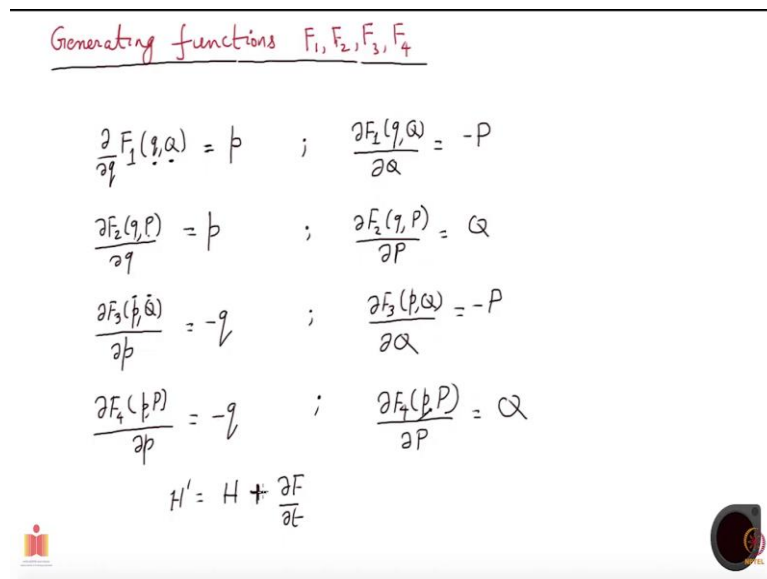 Generating functions F₁, F₂, F₃, F₄
∂/∂q F₁(q,Q) = p ; ∂F₁(q,Q)/∂Q = -P
∂F₂(q,P)/∂q = p ; ∂F₂(q,P)/∂P = Q
∂F₃(p,Q)/∂p = -q ; ∂F₃(p,Q)/∂Q = -P
∂F₄(p,P)/∂p = -q ; ∂F₄(p,P)/∂P = Q
H' = H + ∂F/∂t
NPTEL